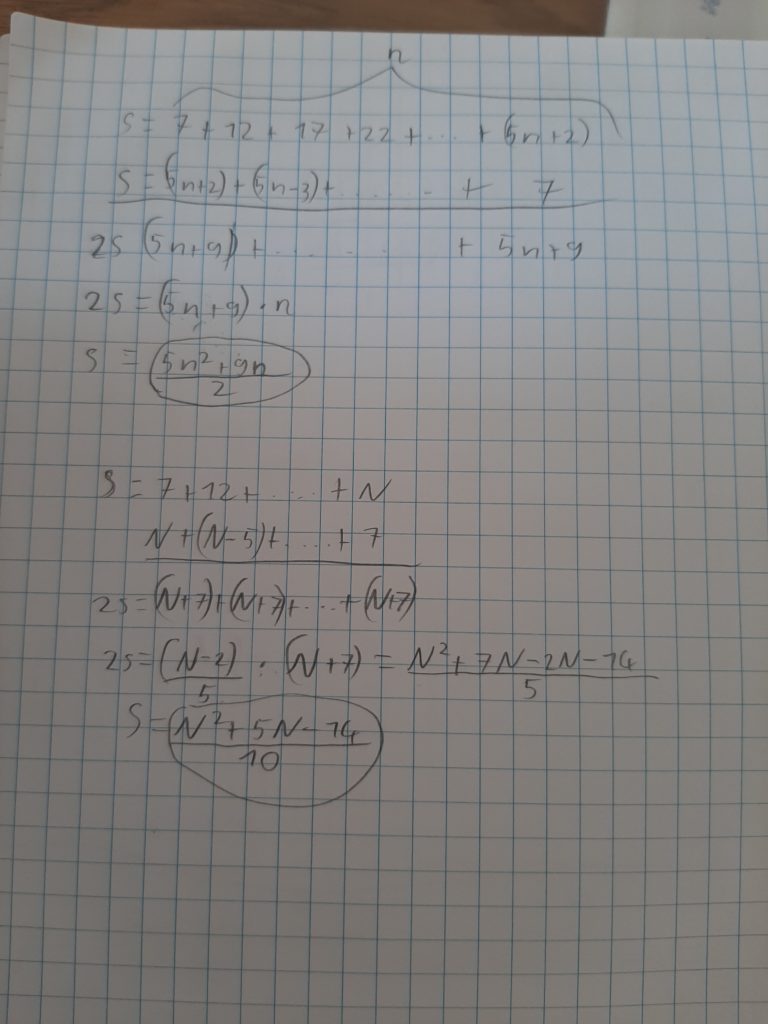 n
S = 7 + 12 + 17 + 22 + ... + (5n+2)
S = (5n+2) + (5n-3) + ....... + 7
2S (5n+9) + ..... + 5n+9
2S = (5n+9) · n
S = (5n²+9n)/2
S = 7+12+.....+N
N+(N-5)+.....+7
2S = (N+7)+(N+7)+...+(N+7)
2S = (N-2)/5 · (N+7) = (N²+7N-2N-14)/5
S = (N²+5N-14)/10